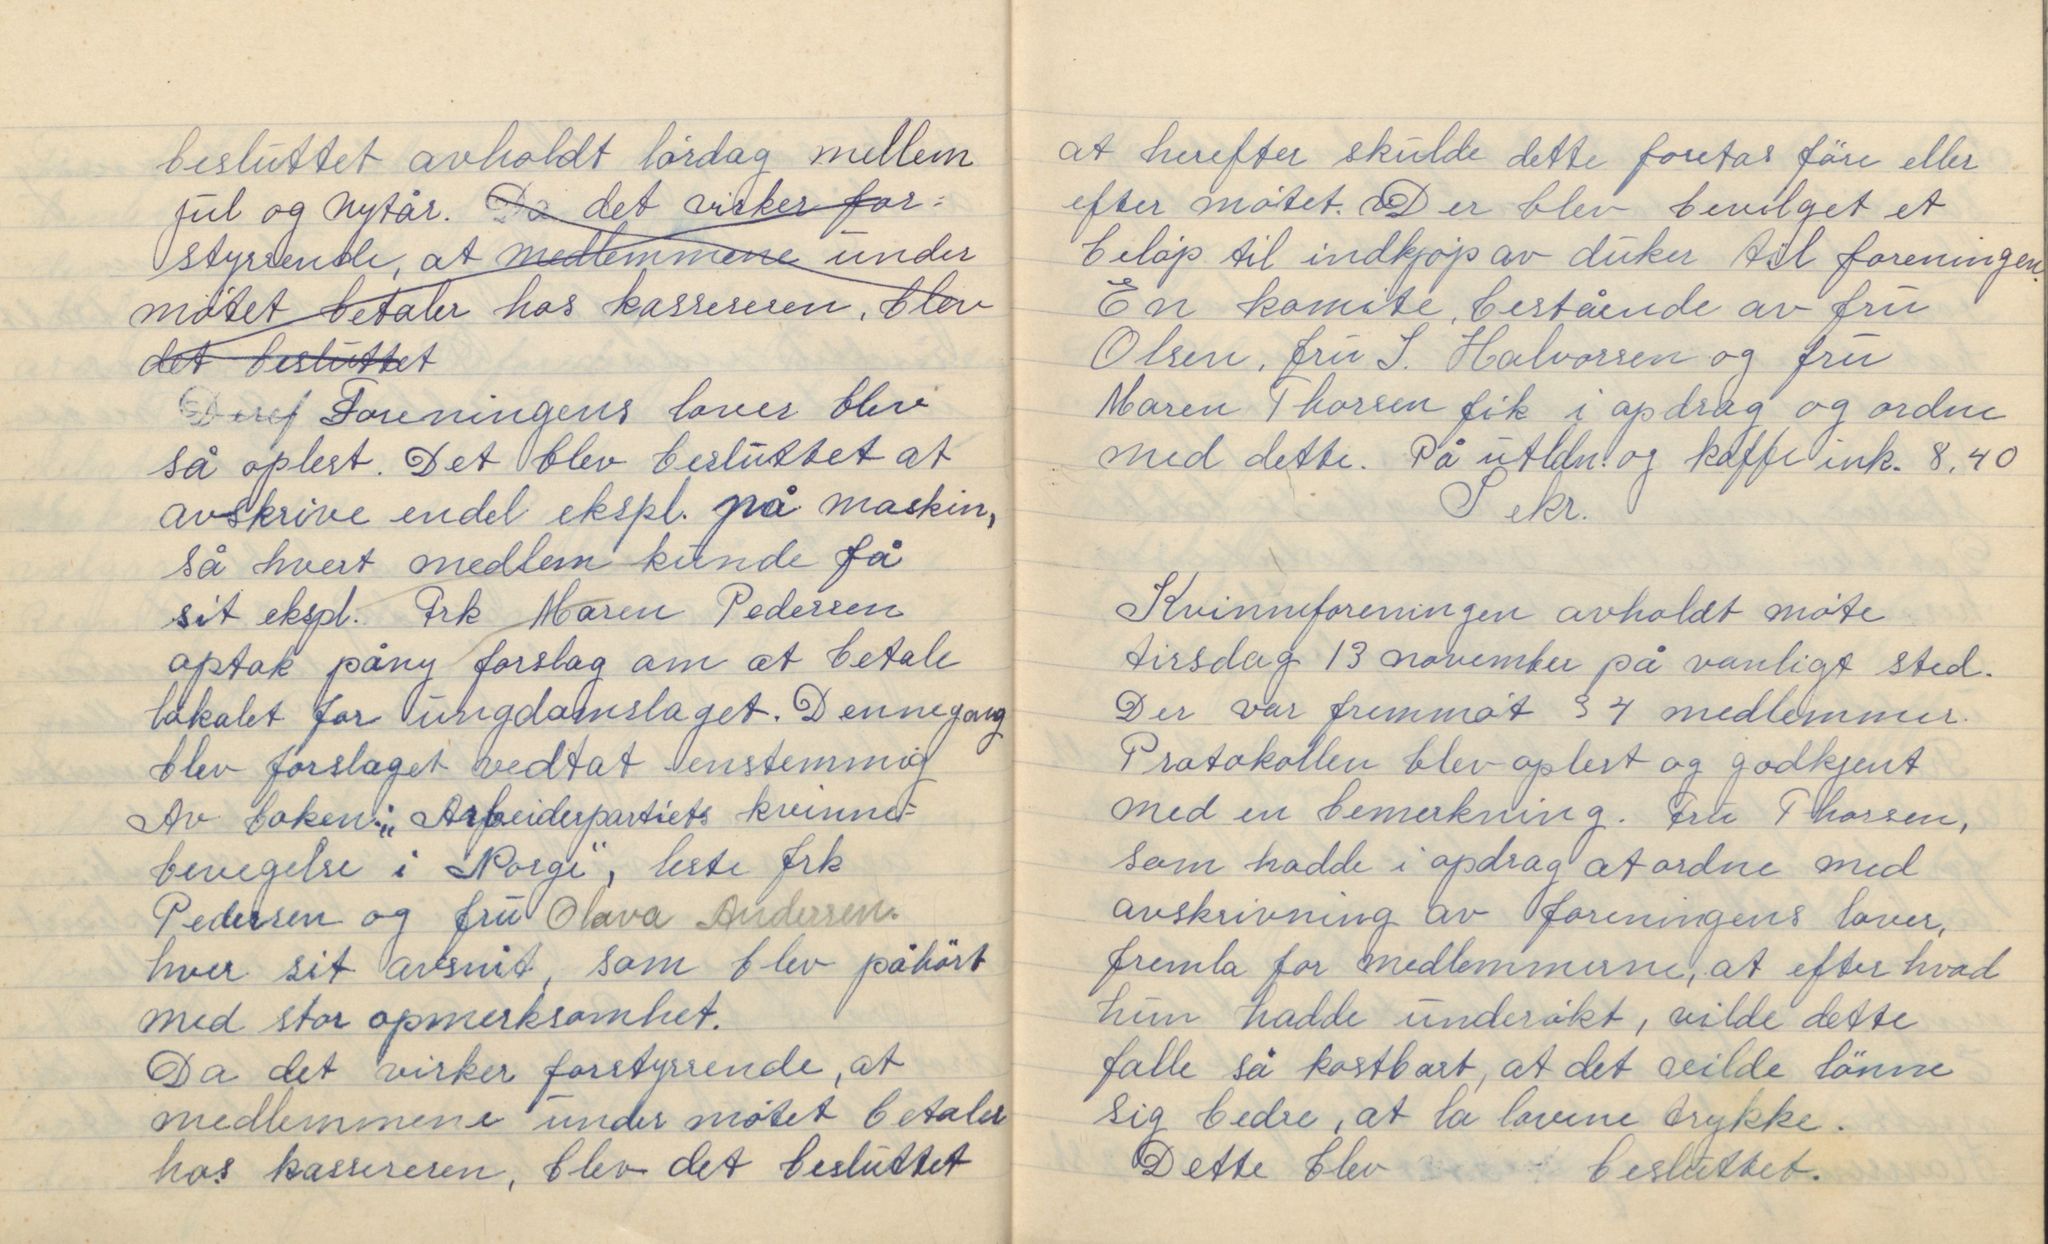 besluttet avholdt lördag mellem
jul og nytår. Da det virker for=
styrrende, at medlemmene under
mötet betaler hos kassereren, blev
det besluttet
Foreningens lover blev
så oplest. Det blev besluttet at
avskrive endel ekspl. på maskin,
så hvert medlem kunde få
sit ekspl. Frk Maren Pedersen
optok påny forslag om at betale
lokalet for ungdomslaget. Dennegang
blev forslaget vedtat enstemmig
Av boken: „Arbeiderpartiets kvinne=
bevegelse i Norge", leste frk
Pedersen og fru Olava Andersen.
hver sit avsnit, som blev påhört
med stor opmerksomhet.
Da det virker forstyrrende, at
medlemmene under mötet betaler
hos kassereren, blev det besluttet
at herefter skulde dette foretas före eller
efter mötet. Der blev bevilget et
belöp til indkjöp av duker til foreningen.
En komite, bestående av fru
Olsen, fru S. Halvorsen og fru
Maren Thorsen fik i opdrag og ordne
med dette. På utldn. og kaffe ink. 8,40
Sekr.
Kvinneforeningen avholdt möte
tirsdag 13 november på vanligt sted.
Der var fremmöt 34 medlemmer.
Protokollen blev oplest og godkjent
med en bemerkning. Fru Thorsen,
som hadde i opdrag at ordne med
avskrivning av foreningens lover,
fremla for medlemmerne, at efter hvad
hun hadde undersökt, vilde dette
falle så kostbart, at det vilde lönne
sig bedre, at la lovene trykke.
Dette blev besluttet.